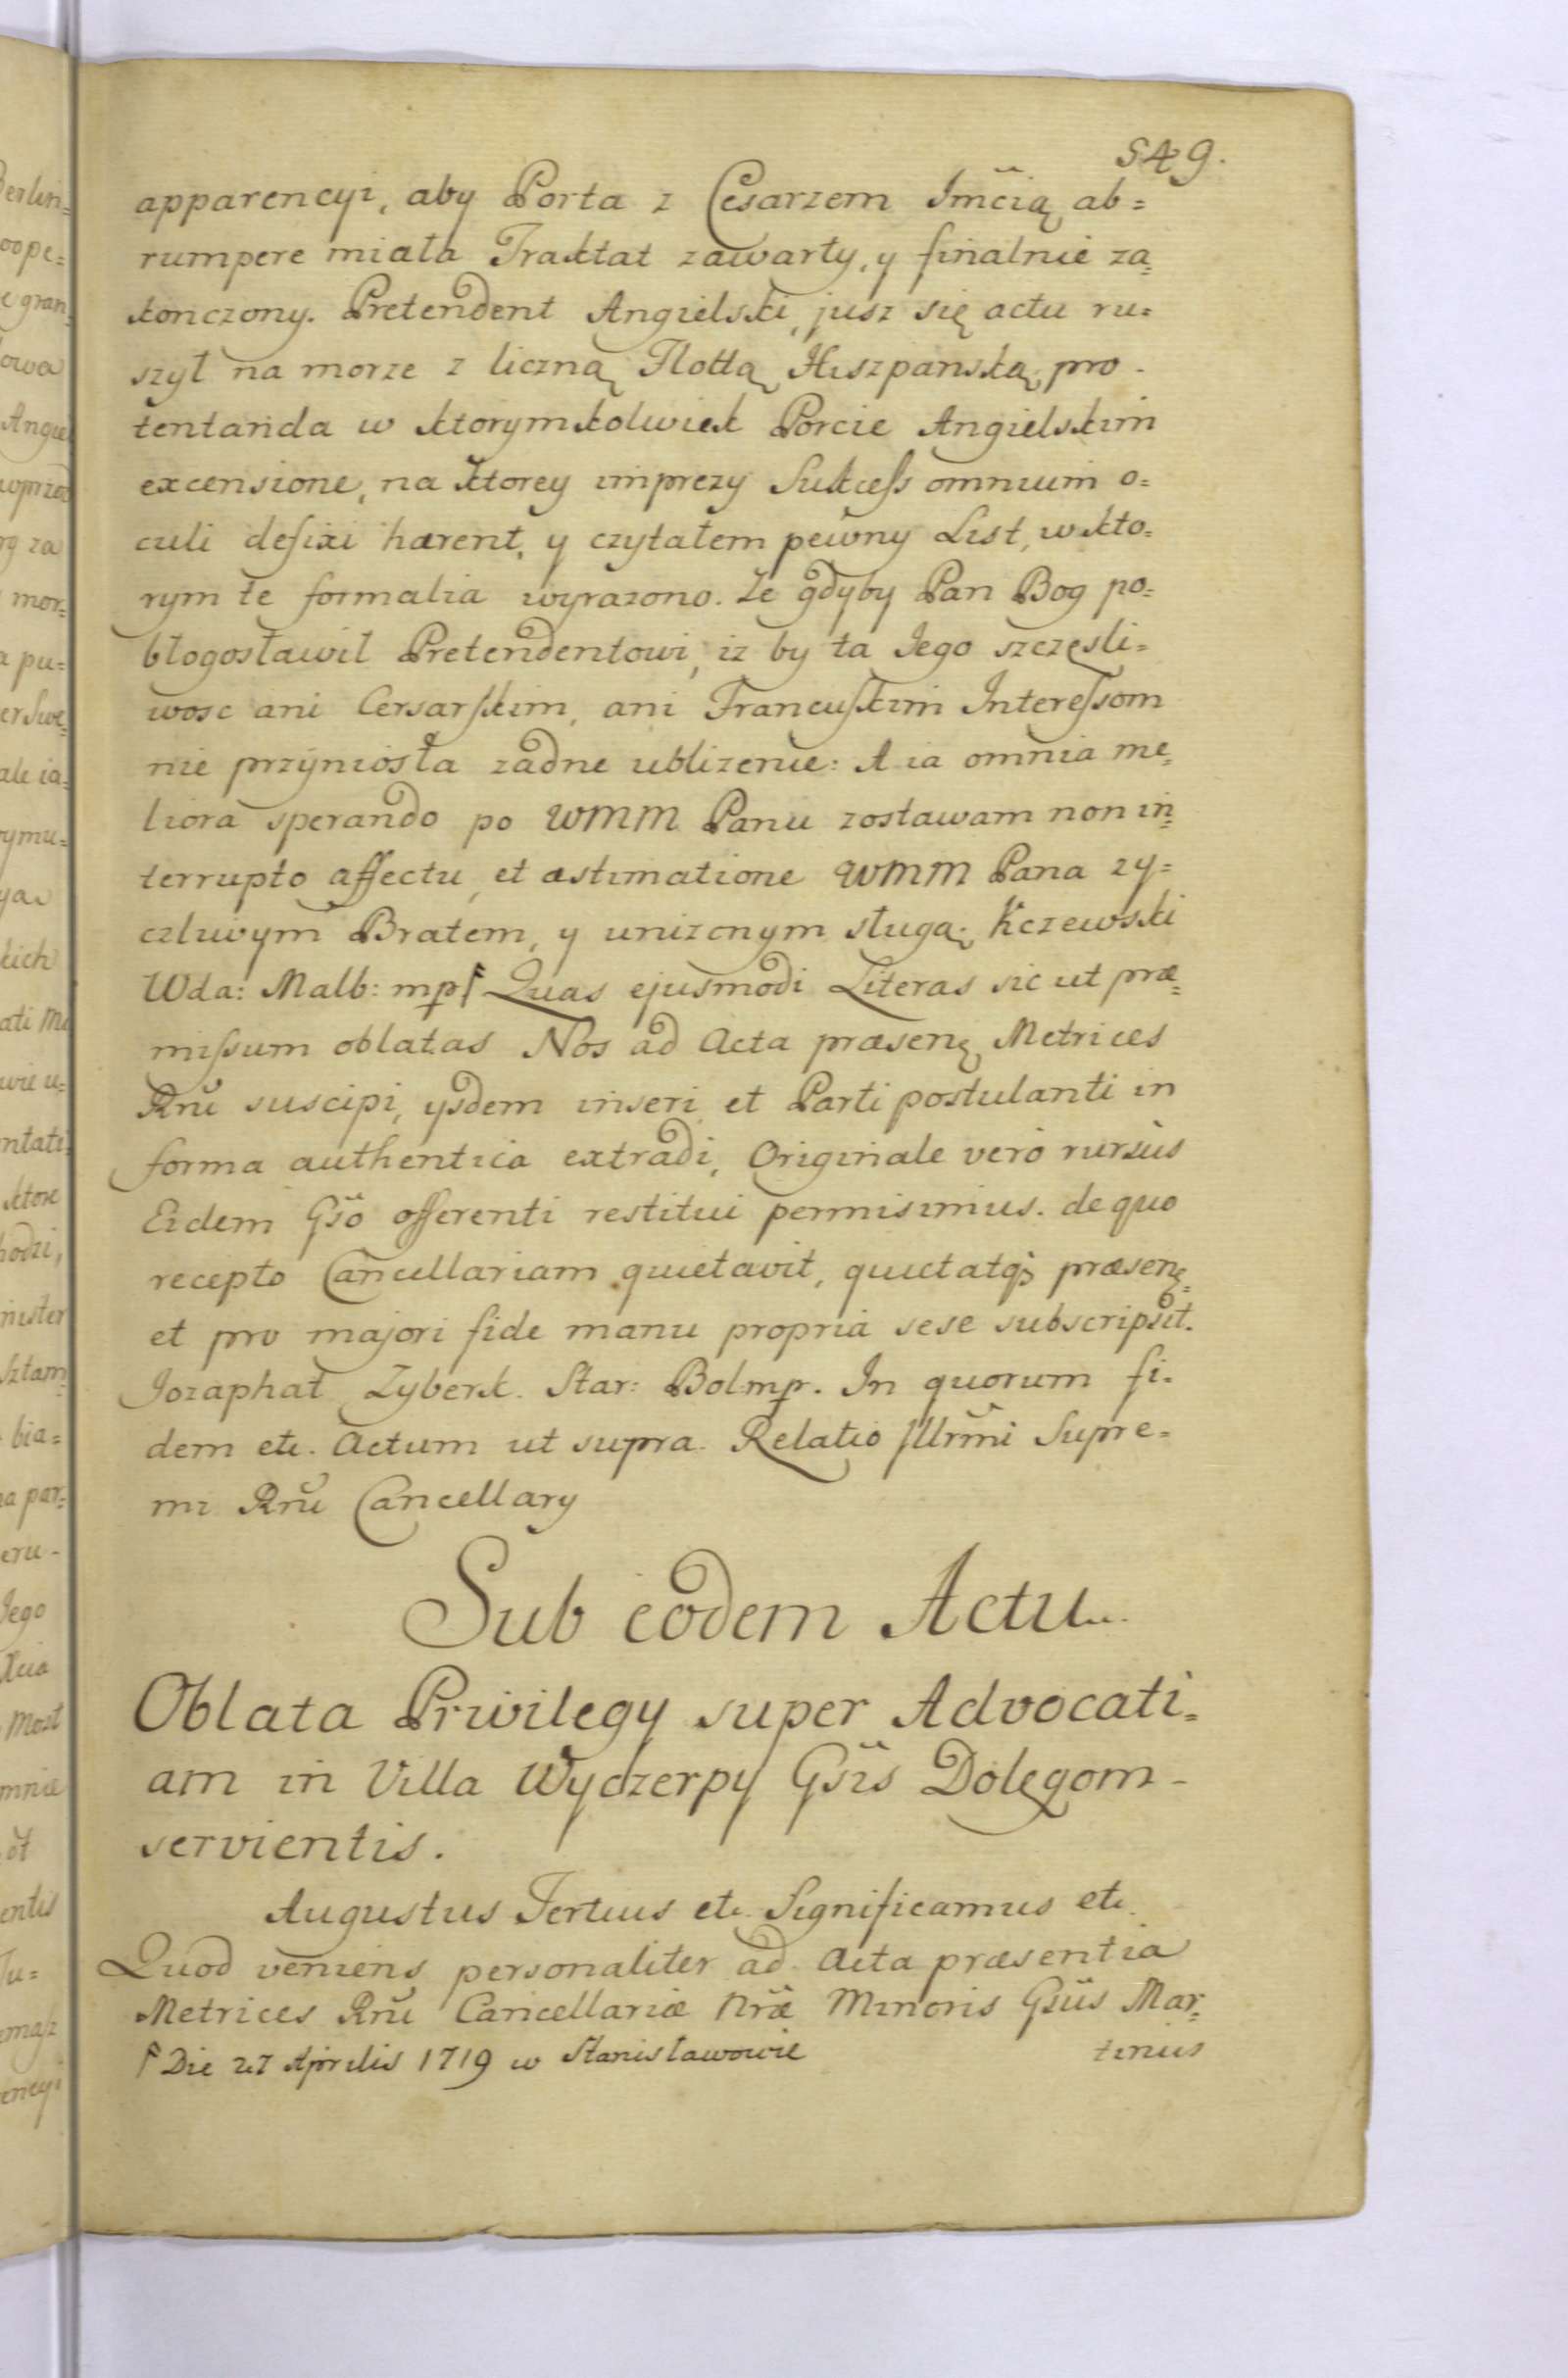 549.
apparencyi, aby Porta z Cesarzem Jmcią ab=
rumpere miała Traktat zawarty, y finalnie za=
konczony. Pretendent Angielski, jusz się actu ru=
szył na morze z liczną Flottą Hiszpanską, pro
tentanda w ktorymkolwiek Porcie Angielskim
excensione, na ktorey imprezy Sukcess omnium o=
culi defixi hærent, y czytałem pewny List, w kto=
rym te formalia wyrazono. Ze gdyby Pan Bog po=
błogosławił Pretendentowi, iz by ta Jego szczęsli=
wosc ani Cersarskim, ani Francuskim Interessom
nie przyniosła zadne ublizenie: A ia omnia me=
liora sperando po WMM Panu zostawam non in=
terrupto affectu, et æstimatione WMM Pana zy=
czliwym Bratem, y unizonym sługą. Kczewski
Wda: Malb: mp ſ Quas ejusmodi Literas sic ut præ=
missum oblatas Nos ad Acta præsenę Metrices
Rnũ suscipi, ysdem inseri et Parti postulanti in
forma authentica extradi, Originale vero rursus
Eidem Gso offerenti restitui permisimus. de quo
recepto Cancellariam quietavit, quietatq; præsenę
et pro majori fide manu propria sese subscripsit.
Jozaphat Zyberk. Star: Bol: mp. In quorum fi=
dem etc. Actum ut supra. Relatio Jllrmi Supre=
mi Rnũ Cancellary
Sub eodem Actu
Oblata Privilegy super Advocati=
am in Villa Wyczerpy Gsis Dolęgom
servientis.
Augustus Tertius etc. Significamus etc.
Quod veniens personaliter ad Acta præsentia
Metrices Rnũ Cancellariæ Nræ Minoris Gsus Mar=
ſ Die 27 Aprilis 1719 w Stanisławowie
tinus